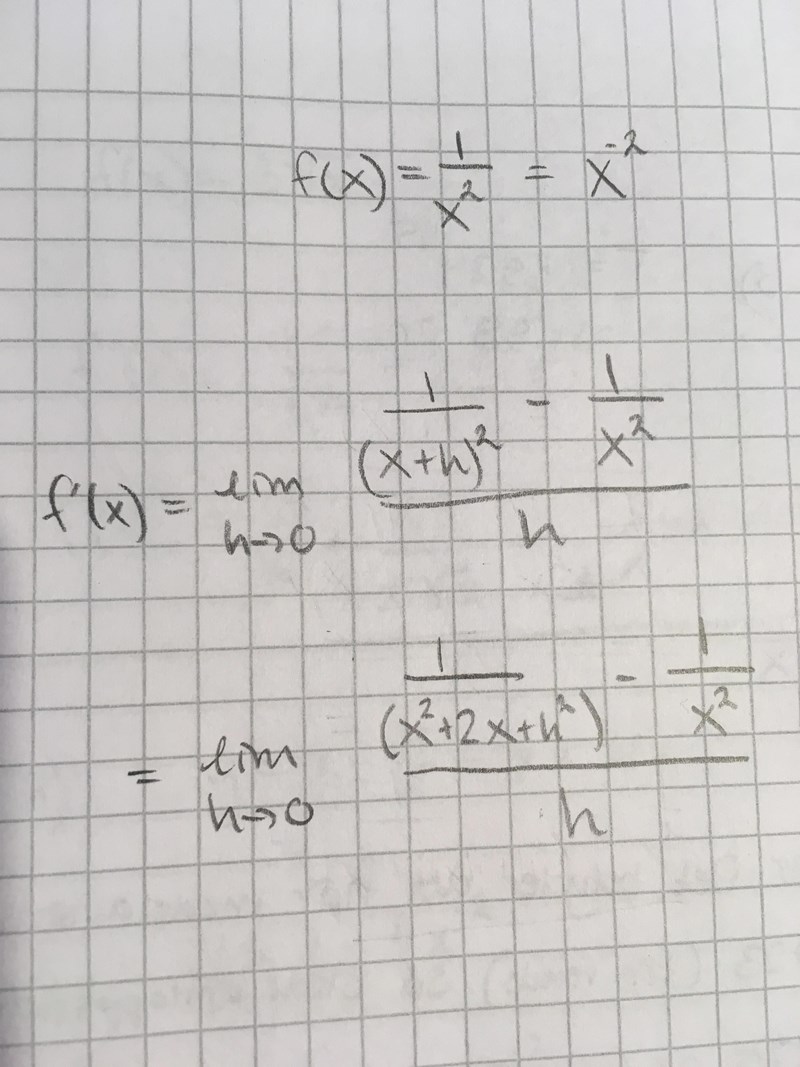 f(x) = 1/x² = x⁻²
f'(x) = lim h→0 (1/(x+h)² - 1/x²)/h
= lim h→0 (1/(x²+2x+h²) - 1/x²)/h